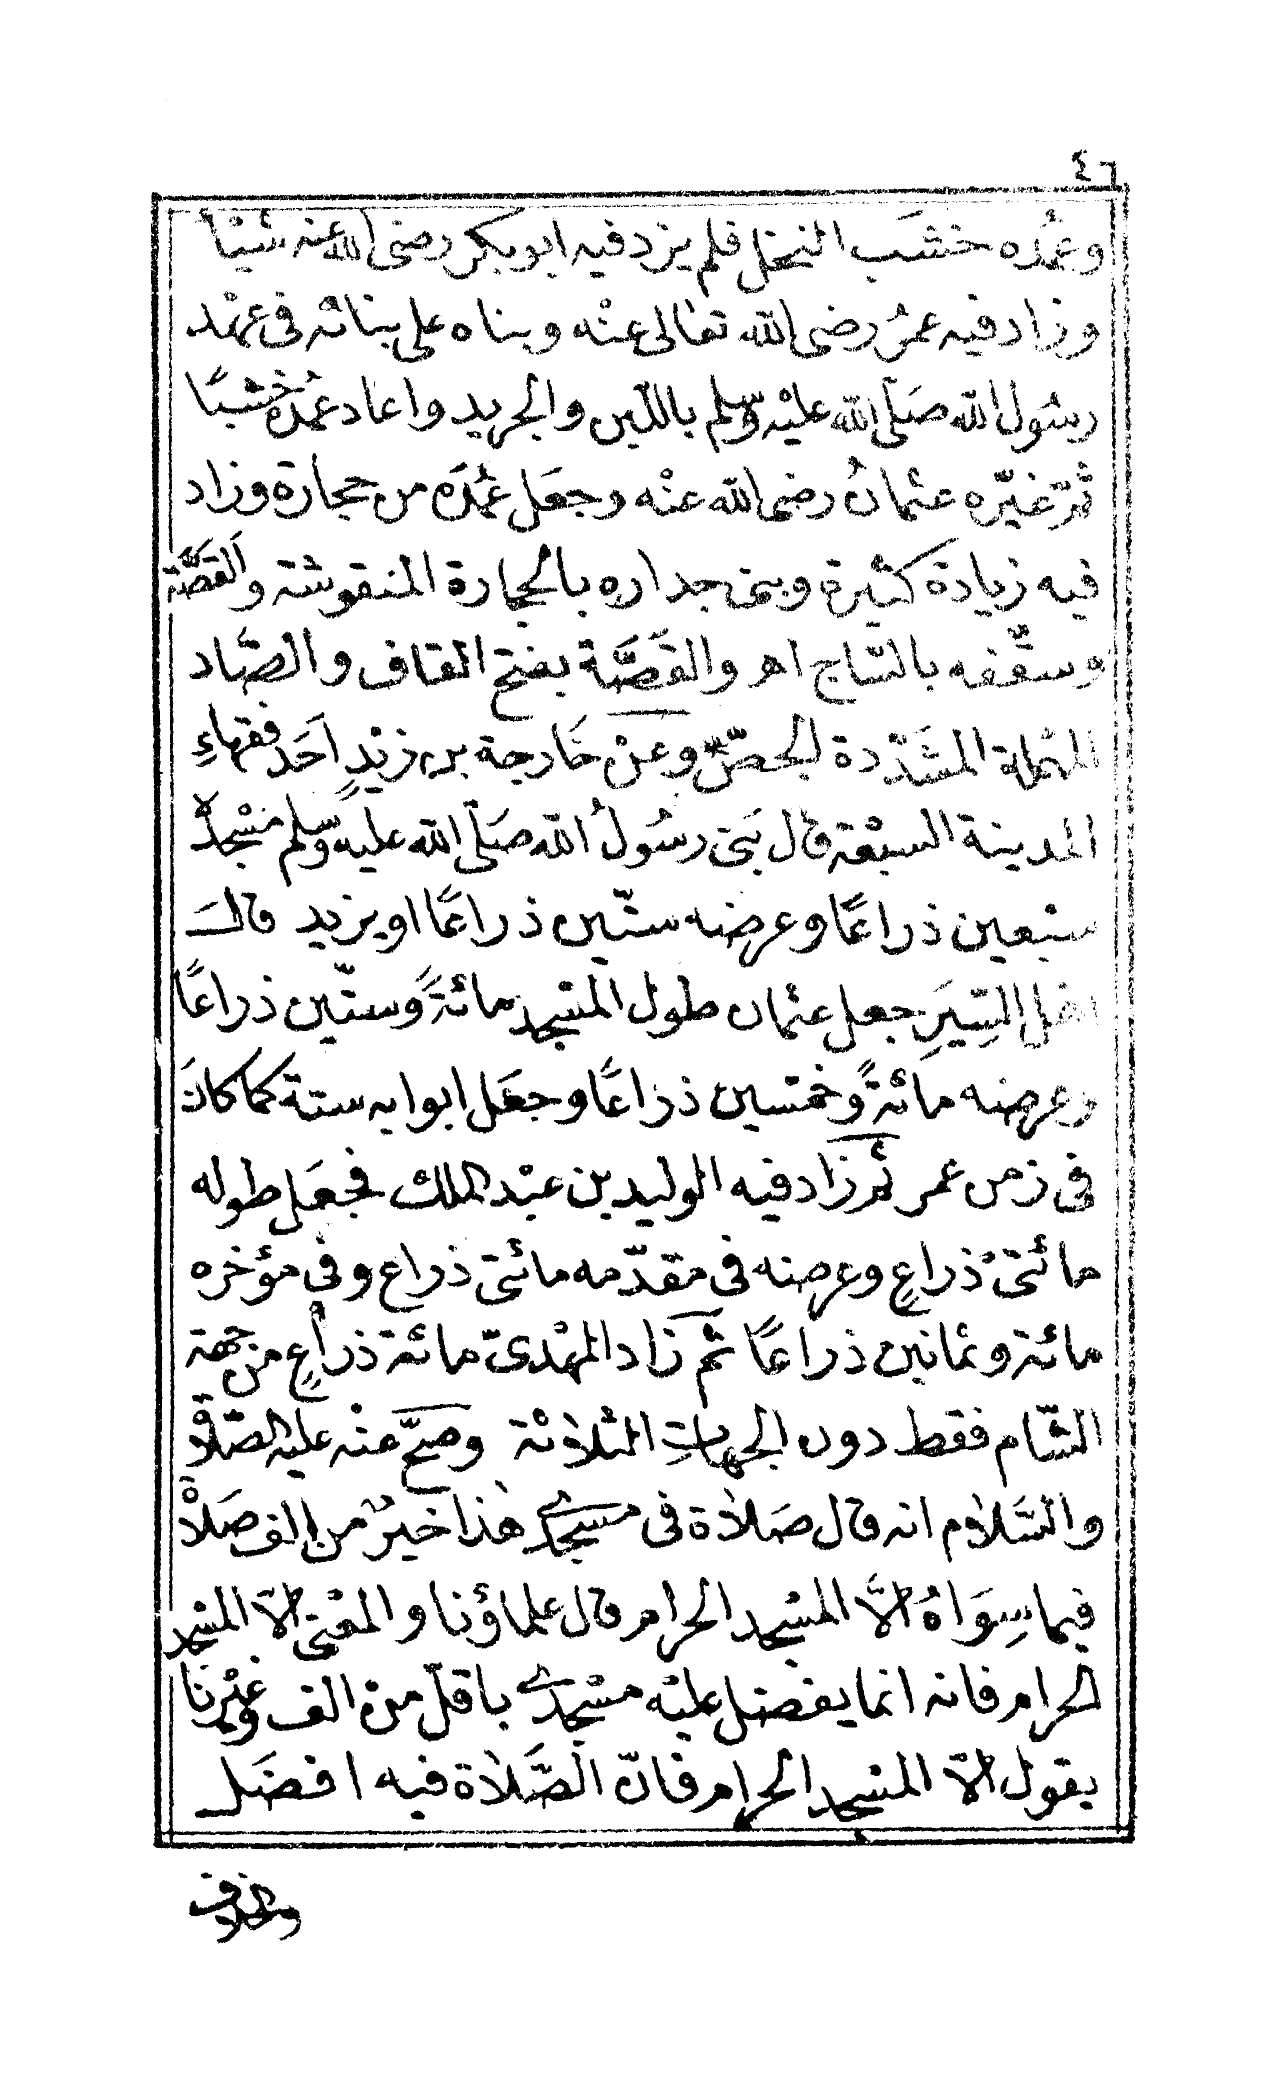 ٤٦
وعُمُده خشَب النخل فلم يزد فيه ابو بكر رضى الله عنه شيئاً
وزاد فيه عمرُ رضى الله تعالى عنْه وبناه على بنائه فى عهْد
رسُول الله صَلّى الله عليْه وسلم باللّبِن والجريد واعاد عُمُدَه خشبًا
ثمّ غيّره عثمانُ رضى الله عنْه وجعَل عُمُدَه من حجارة وزاد
فيه زيادة كثيرة وبنى جداره بالحجارة المنقوشة والقَصَّة
وسقّفه بالسّاج اهـ والقَصَّة بفتح القاف والصّاد
المهْملة المشَدّدة الجصّ وعنْ خَارجة بن زيْدٍ احَد فقهاءِ
المدينة السبْعة قال بَنى رسُولُ الله صَلّى الله عليه وسلم مسْجدَه
سبْعين ذراعًا وعرضه ستّين ذراعًا او يزيد قالَ
اهل السِيَرِ جعل عثمان طول المسْجد مائةً وستّين ذراعًا
وعرضه مائةً وخمْسين ذراعًا وجعَل ابوابه ستة كما كانَ
فى زمن عمر ثمّ زاد فيه الوليد بن عبْد الملك فجعَل طوله
مائتىْ ذراعٍ وعرضه فى مقدّمه مائتى ذراع وفى مؤخره
مائة وثمانين ذراعًا ثمّ زاد المهْدىّ مائة ذراعٍ من جهة
الشّام فقط دون الجهاتِ الثلاثة وصحّ عنْه عليه الصّلاة
والسَّلام انه قال صَلاة فى مسْجدى هذا خيرٌ من الف صَلاة
فيما سِوَاهُ الاَّ المسْجد الحرام قال علماؤنا والمعْنى الاّ المسْجد
الحرام فانه انما يفضل عليْه مسْجدى باقلّ منْ الف وغيْرنا
يقول الاّ المسْجد الحرام فانّ الصَّلاة فيه افضَل
والخلاف